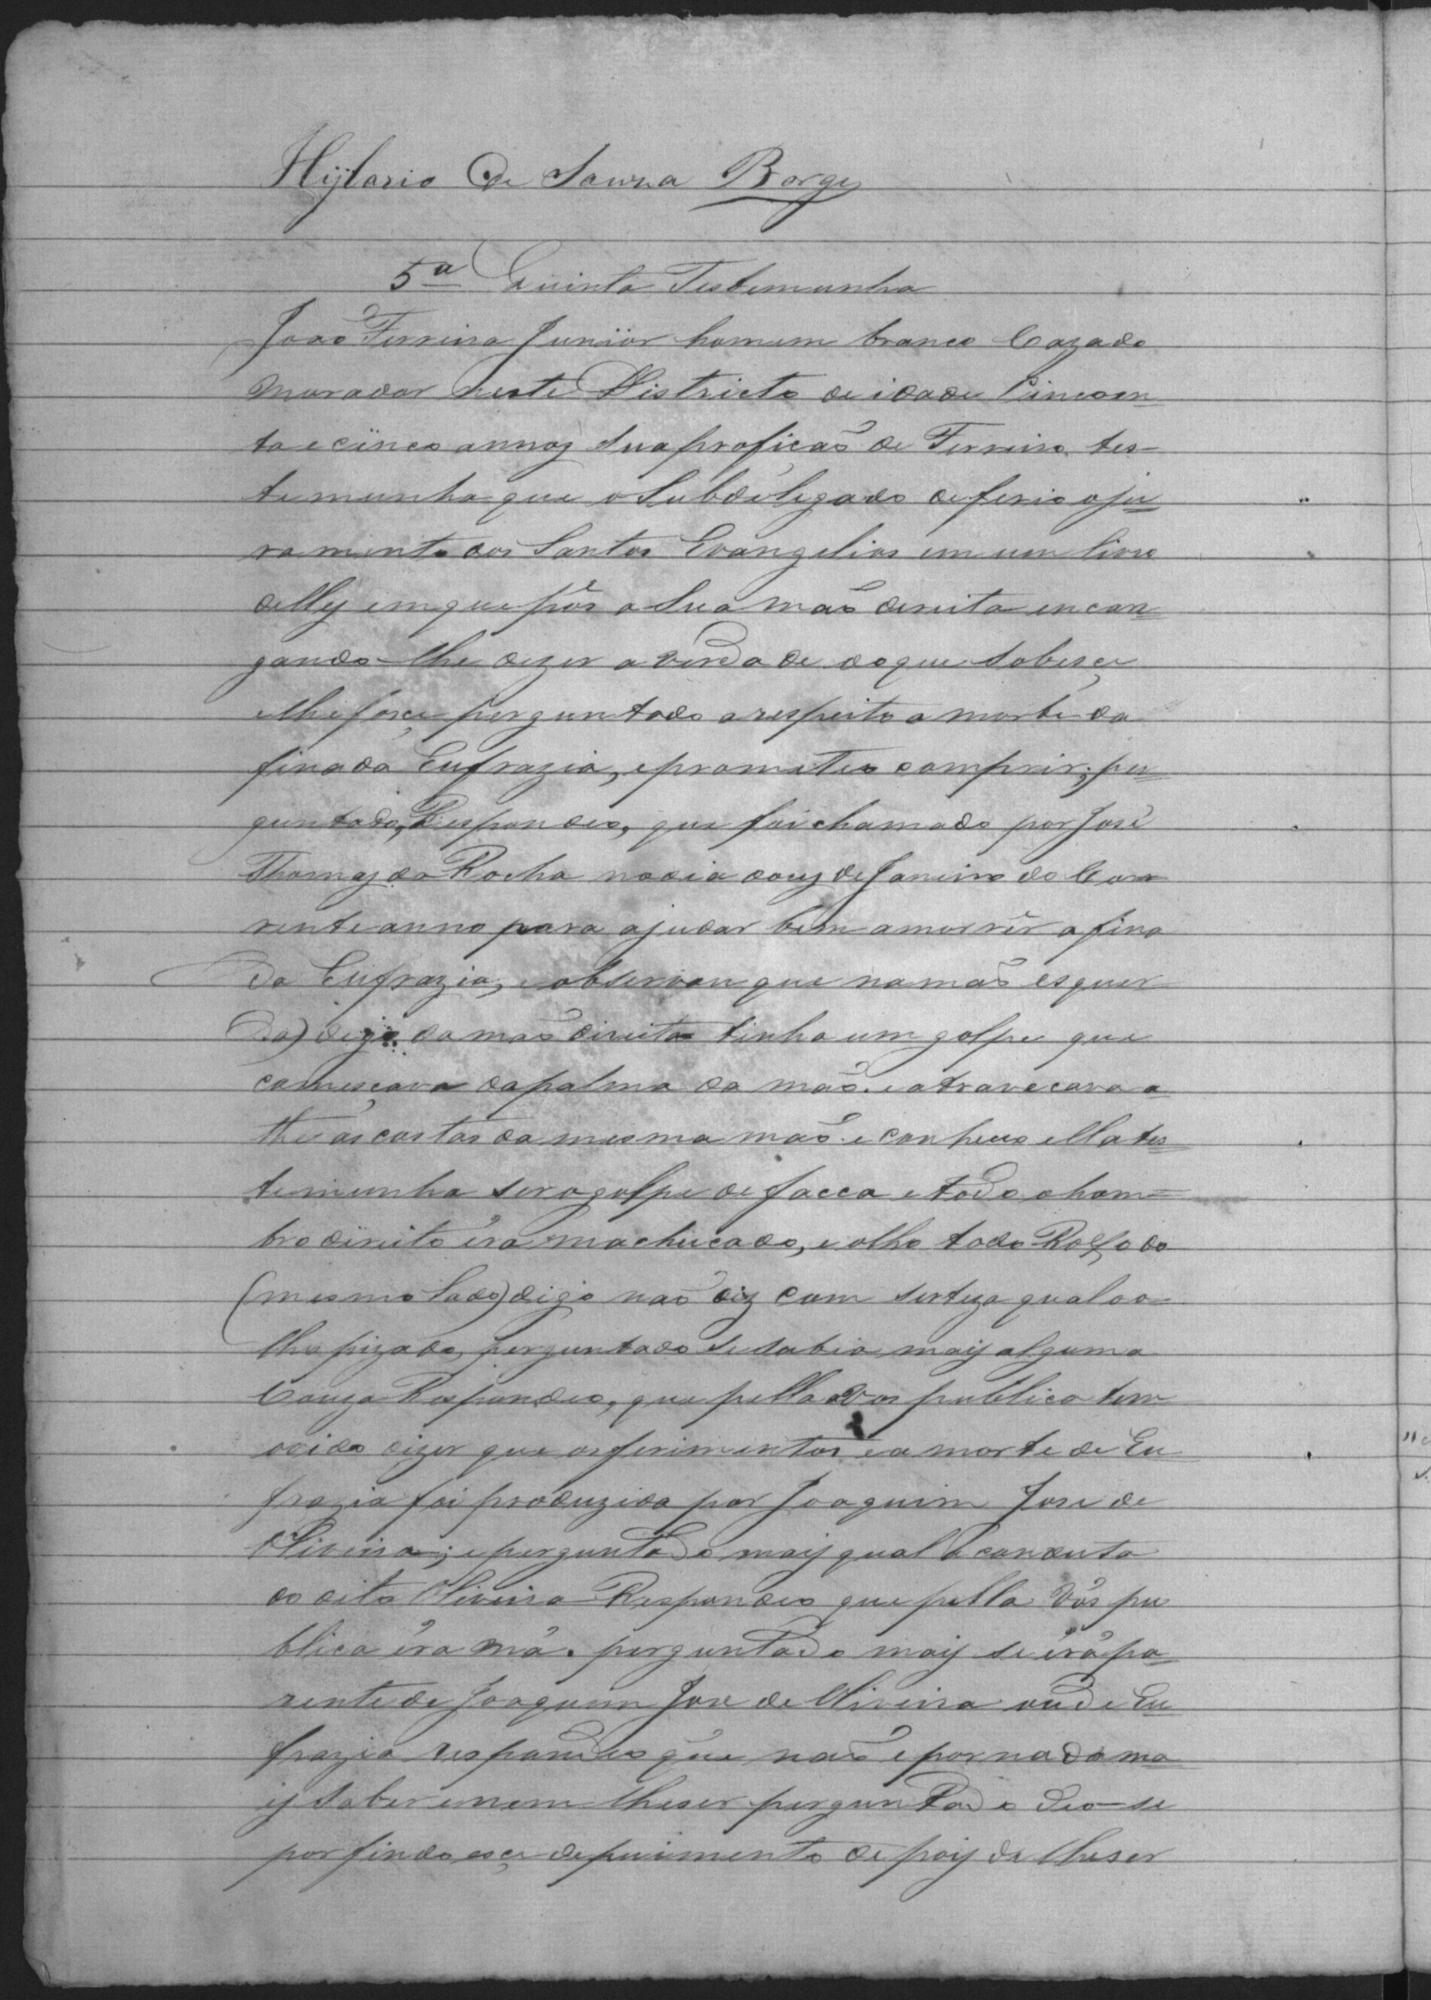 Hijlario de Souza Borges
5ª Quinta Testemunha
João Ferreira Juniior homem branco Cazado
morador neste Districto de idade Cincoen
ta e cinco annos sua proficaõ de Ferreiro tes-
temunha que o Subdélegado deferio o ju
ramento dos Santos Evangelios em um livro
delles em que pôs a sua maõ direita encar
gando-lhe dizer a verdade do que sobesçe
e lhe foçe perguntado a respeito a morte da
finada Eufrazia, e prometeo comprir; per
guntado, Respondeo, que foi chamado por José
Thomaz da Rocha no dia douz de Janeiro do Corr
rente anno para ajudar bem a morrêr a fina
da Eufrazia; e observou que na maõ esquer
da) digo da maõ direita tinha um golpe que
comesçava da palma da maõ e atravecava a
thé as costas da mesma maõ e conheceo ella tes
temunha ser o golpe de facca e todo o hom=
bro direito éra machucado, e olho todo Roxo do
(mesmo Lado) digo naõ diz com serteza qual o o-
lho pizado, perguntado se sabia mais alguma
Couza Respondeo, que pella vos publica tem
ovido dizer que os ferimentos e a morte de Eu
frazia foi produzida por Joaquim Jose de
Oliveira; e perguntado mais qual a conduta
do dito Oliveira Respondeo que pella vós pu
blica éra má. perguntado mais se éra pa
rente de Joaquim Jose de Oliveira ou de Eu
frazia respondeo que naõ e por nada ma
is saber e nem lhe ser perguntado deo-se
por findo esçe depuimento depois de lhe ser